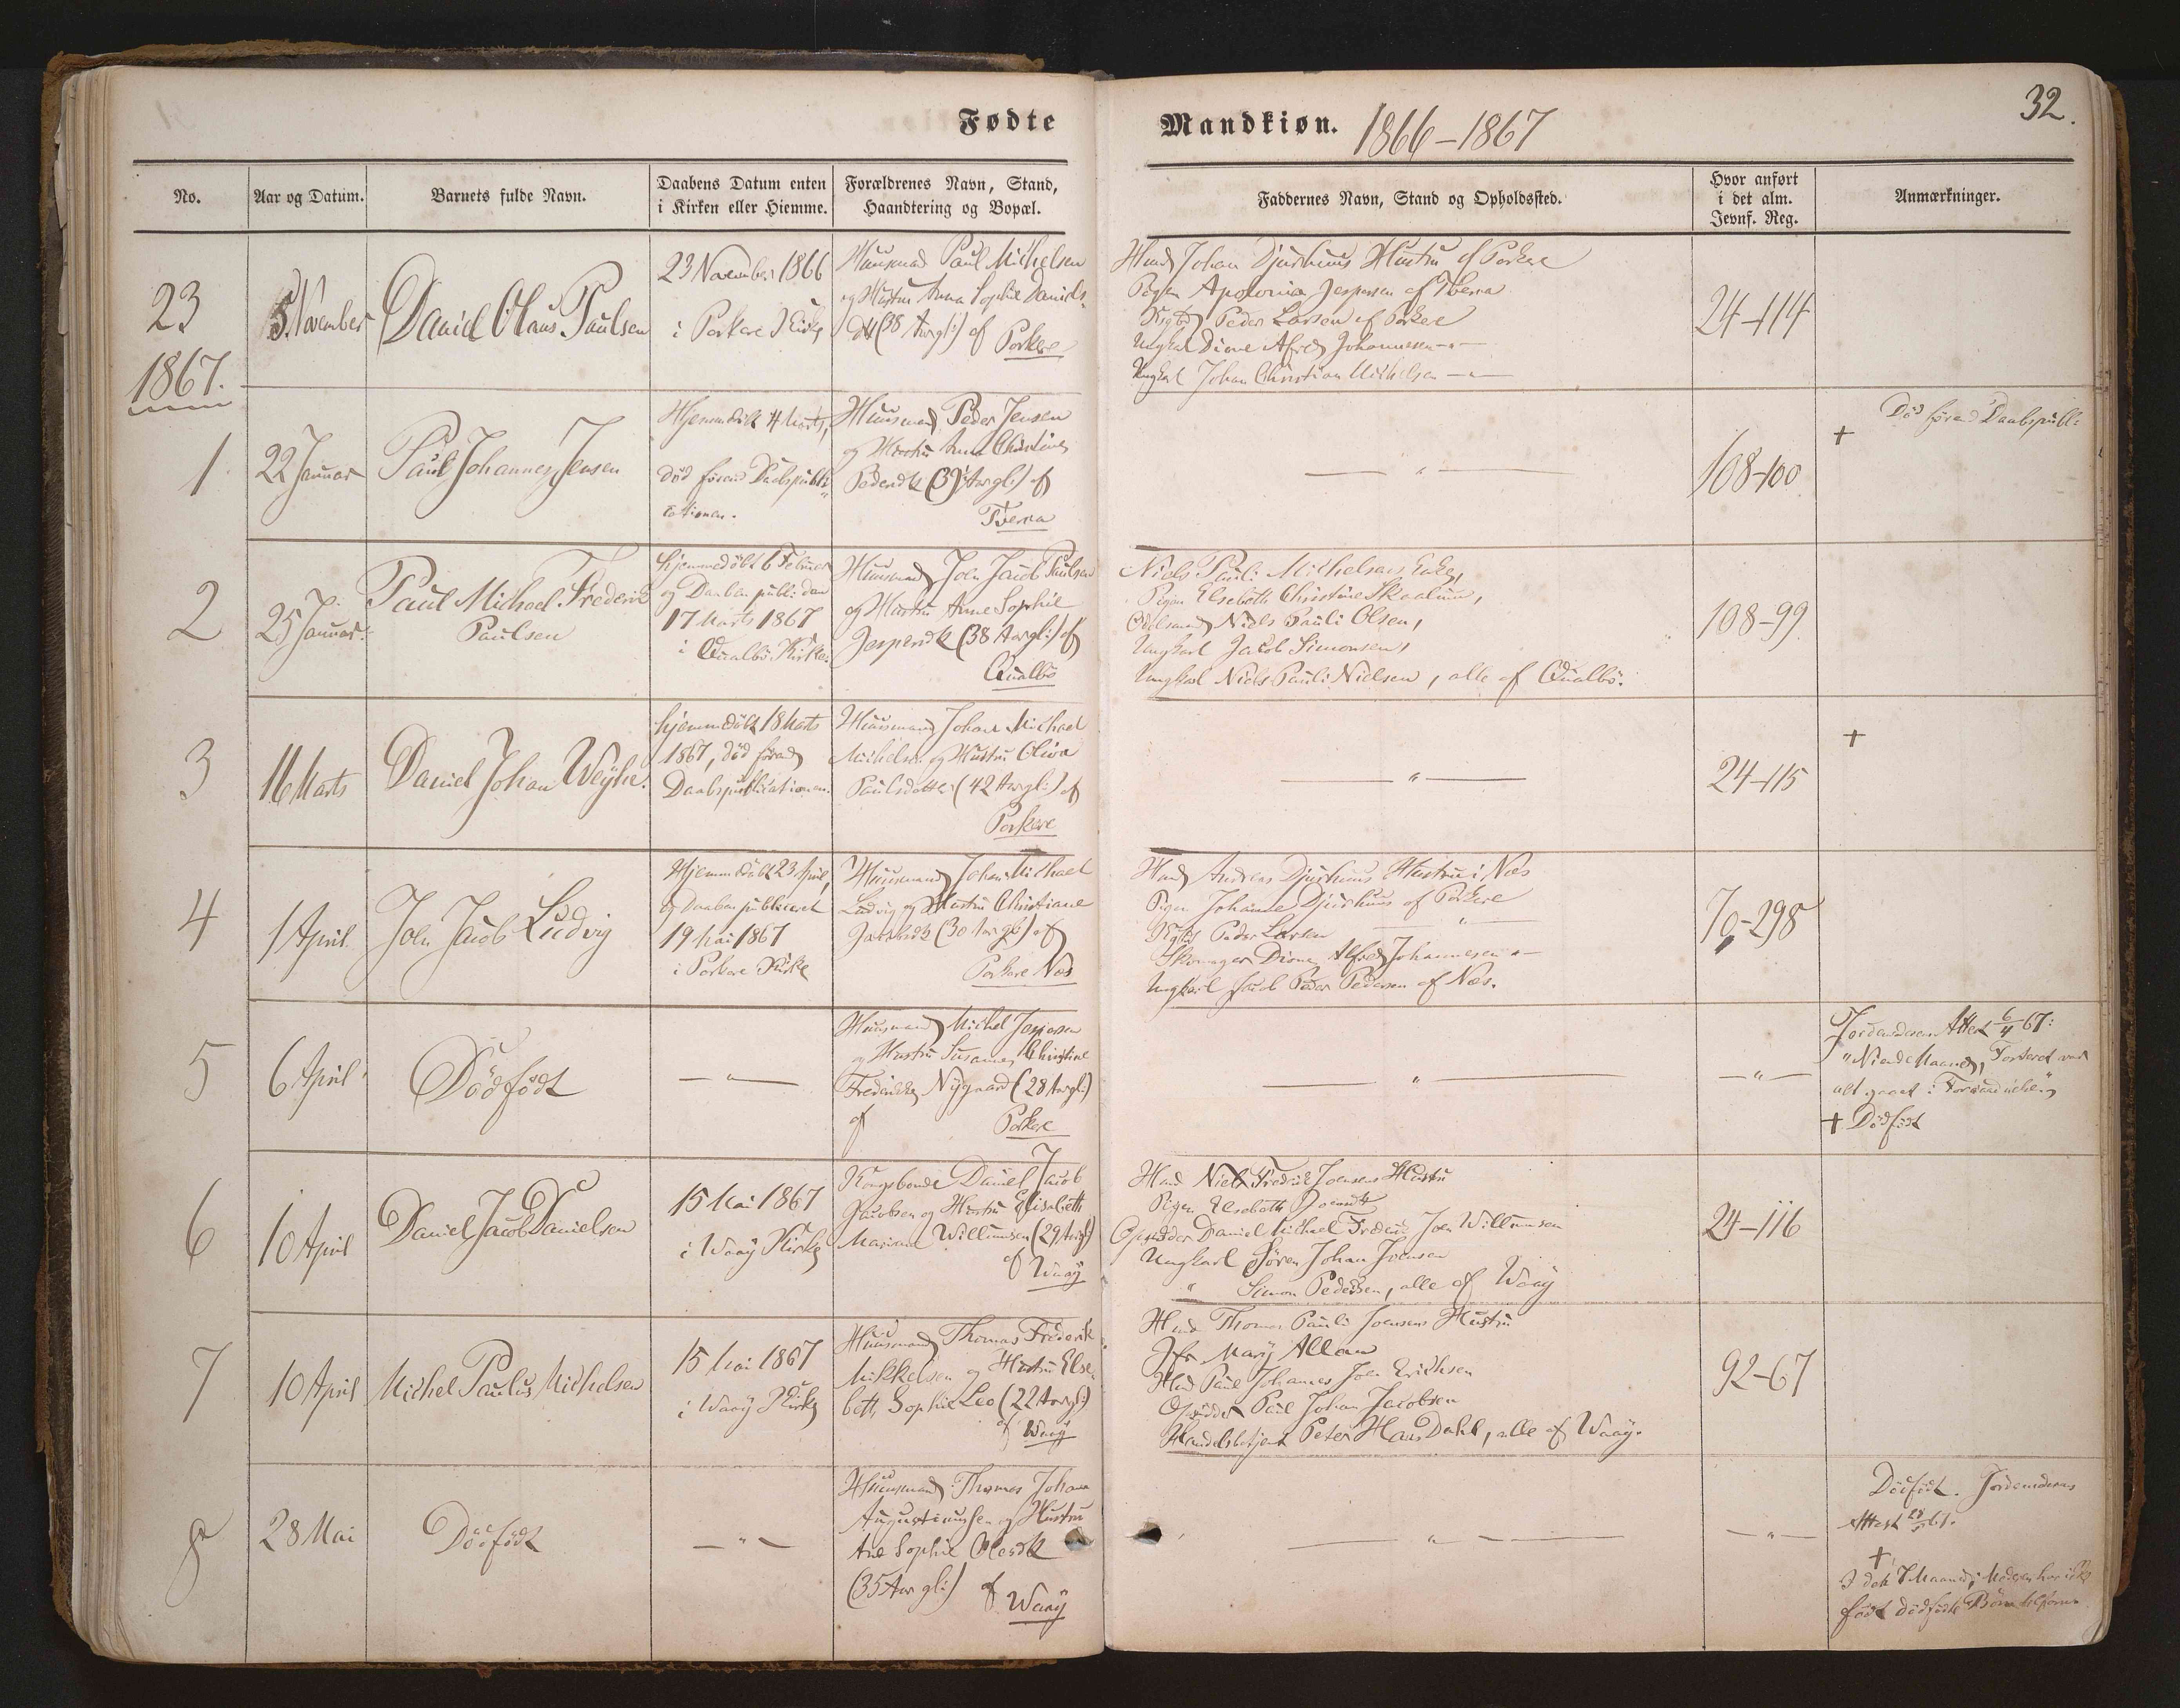 Fødte
Mandkiøn. 1866-1867
32.
No.
Aar og Datum.
Barnets fulde Navn.
Daabens Datum enten
i Kirken eller Hiemme.
Forældrenes Navn, Stand,
Haandtering og Bopæl.
Faddernes Navn, Stand og Opholdssted.
Hvor anført
i det alm.
Jevnf. Reg.
Anmærkninger.
23
5 November
Daniel Olaus Paulsen
23 November 1866
i Porkere Kirke
Huusmand Paul Michelsen
og Hustru Anna Sophie Daniels-
dtr (38 Aar gl:) af
Porkere
Hmd Johan Djurhuus Hustru af Porkere
Pigen Apolonia Jespersen af Tvera
Peder Larsen af Porkere
Ungkarl Dione Alfred Johannesen -"-
Ungkarl Johan Christian Michelsen -"-
24-114
1867.
1.
22 Januar
Paul Johannes Jensen
Hjemmedöbt 4 Marts,
död forend Daabspubli-
cationen.
Huusmand Peder Jensen
og Hustru Anna Christine
Pedersdtr (39 Aar gl:) af
Tvera
— " —
108-100
Död forend Daabspubl:
+
2
25 Januar.
Paul Michael Frederik
Paulsen
Hjemmedöbt 6 Februar
og Daaben publ: den
17 Marts 1867
i Qualbö Kirke
Huusmand Joen Jacob Paulsen
og Hustru Anne Sophie
Jespersdtr (38 Aar gl:) af
Qualbö
Niels Pauli Michelsens Enke,
Pigen Elsebeth Christine Skaalum,
Odelsmand Niels Pauli Olsen,
Ungkarl Jacob Simonsen,
Ungkarl Niels Pauli Nielsen, alle af Qualbö.
108-99
3
16 Marts
Daniel Johan Weyhe.
Hjemmedöbt 18 Marts
1867, död forend
Daabspublicationen.
Huusmand Johan Michael
Michelsen og Hustru Oliva
Paulsdatter (42 Aar gl:) af
Porkere
— " —
24-115
+
4
1 April
Joen Jacob Ludvig
Hjemmedöbt 23 April,
og Daaben publiceret
19 Mai 1867
i Porkere Kirke
Huusmand Johan Michael
Ludvig og Hustru Christiane
Jacobsdtr (30 Aar gl:) af
Porkere Næs
Hmd Andreas Djurhuus Hustru i Næs
Pigen Johanne Djurhuus af Porkere
Peder Larsen — " —
Skomager Dione Alfred Johannesen -"-
Ungkarl Jacob Peder Pedersen af Næs.
70-298
5
6 April
Dödfödt
— " —
Huusmand Michel Jespersen
og Hustru Susanne Christine
Frederikke Nygaard (28 Aar gl:)
af Porkere
— " —
— " —
Jordemoderens Attest 6/4 67:
"Niende Maaned, Fosteret var
alt gaaet i Forraadnelse"
+ Dödfödt
6
10 April
Daniel Jacob Danielsen
15 Mai 1867
i Waag Kirke
Kongsbonde Daniel Jacob
Jacobsen og Hustru Elisabeth
Mariane Willumsen (29 Aar gl:)
af Waag
Hmd Niels Fredrik Joensens Hustru
Pigen Elsebeth Joensdtr
Daniel Michael Frederik Joen Willumsen
Ungkarl Sören Johan Joensen
" Simon Pedersen, alle af Waag
24-116
7
10 April
Michel Paulus Michelsen
15 Mai 1867
i Waag Kirke
Huusmand Thomas Frederik
Mikkelsen og Hustru Else-
beth Sophie Leo (22 Aar gl:)
af Waag
Hmd Thomas Pauli Joensens Hustru
Jfr Mary Allan
Hmd Paul Johannes Joen Erichsen
Paul Johan Jacobsen
Handelsbetjent Peter Hans Dahl, alle af Waag.
92-67
8
28 Mai
Dödfödt
— " —
Huusmand Thomas Johan
Augustinussen og Hustru
Ane Sophie Olesdtr
(35 Aar gl:) af
Waag
— " —
— " —
Dödfödt. Jordemoderens
Attest 28/5 67.
+
I det 7 Maaned, Moderen har ikke
födt dödfödte Börn tilforn